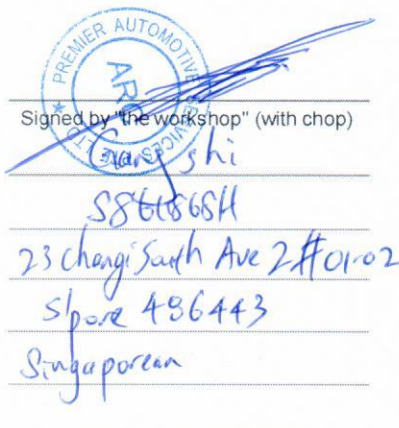 PREMIER AUTOMOTIVE SERVICES PTE LTD
ARC
Signed by "the workshop" (with chop)
shi
23 Changi South Ave 2 #01-02
S'pore 486443
Singaporean